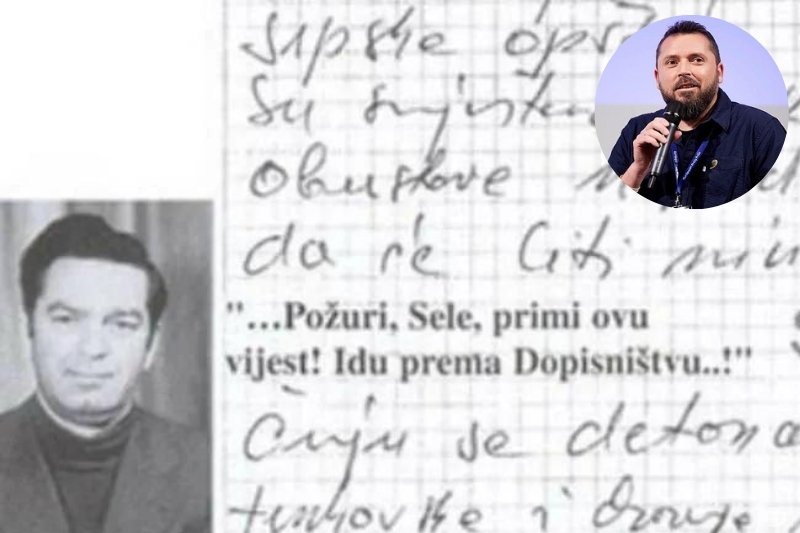 srpske
su
obustave
da će biti
"...Požuri, Sele, primi ovu
vijest! Idu prema Dopisništvu..!"
Čuju se detona
tenkovske i druge